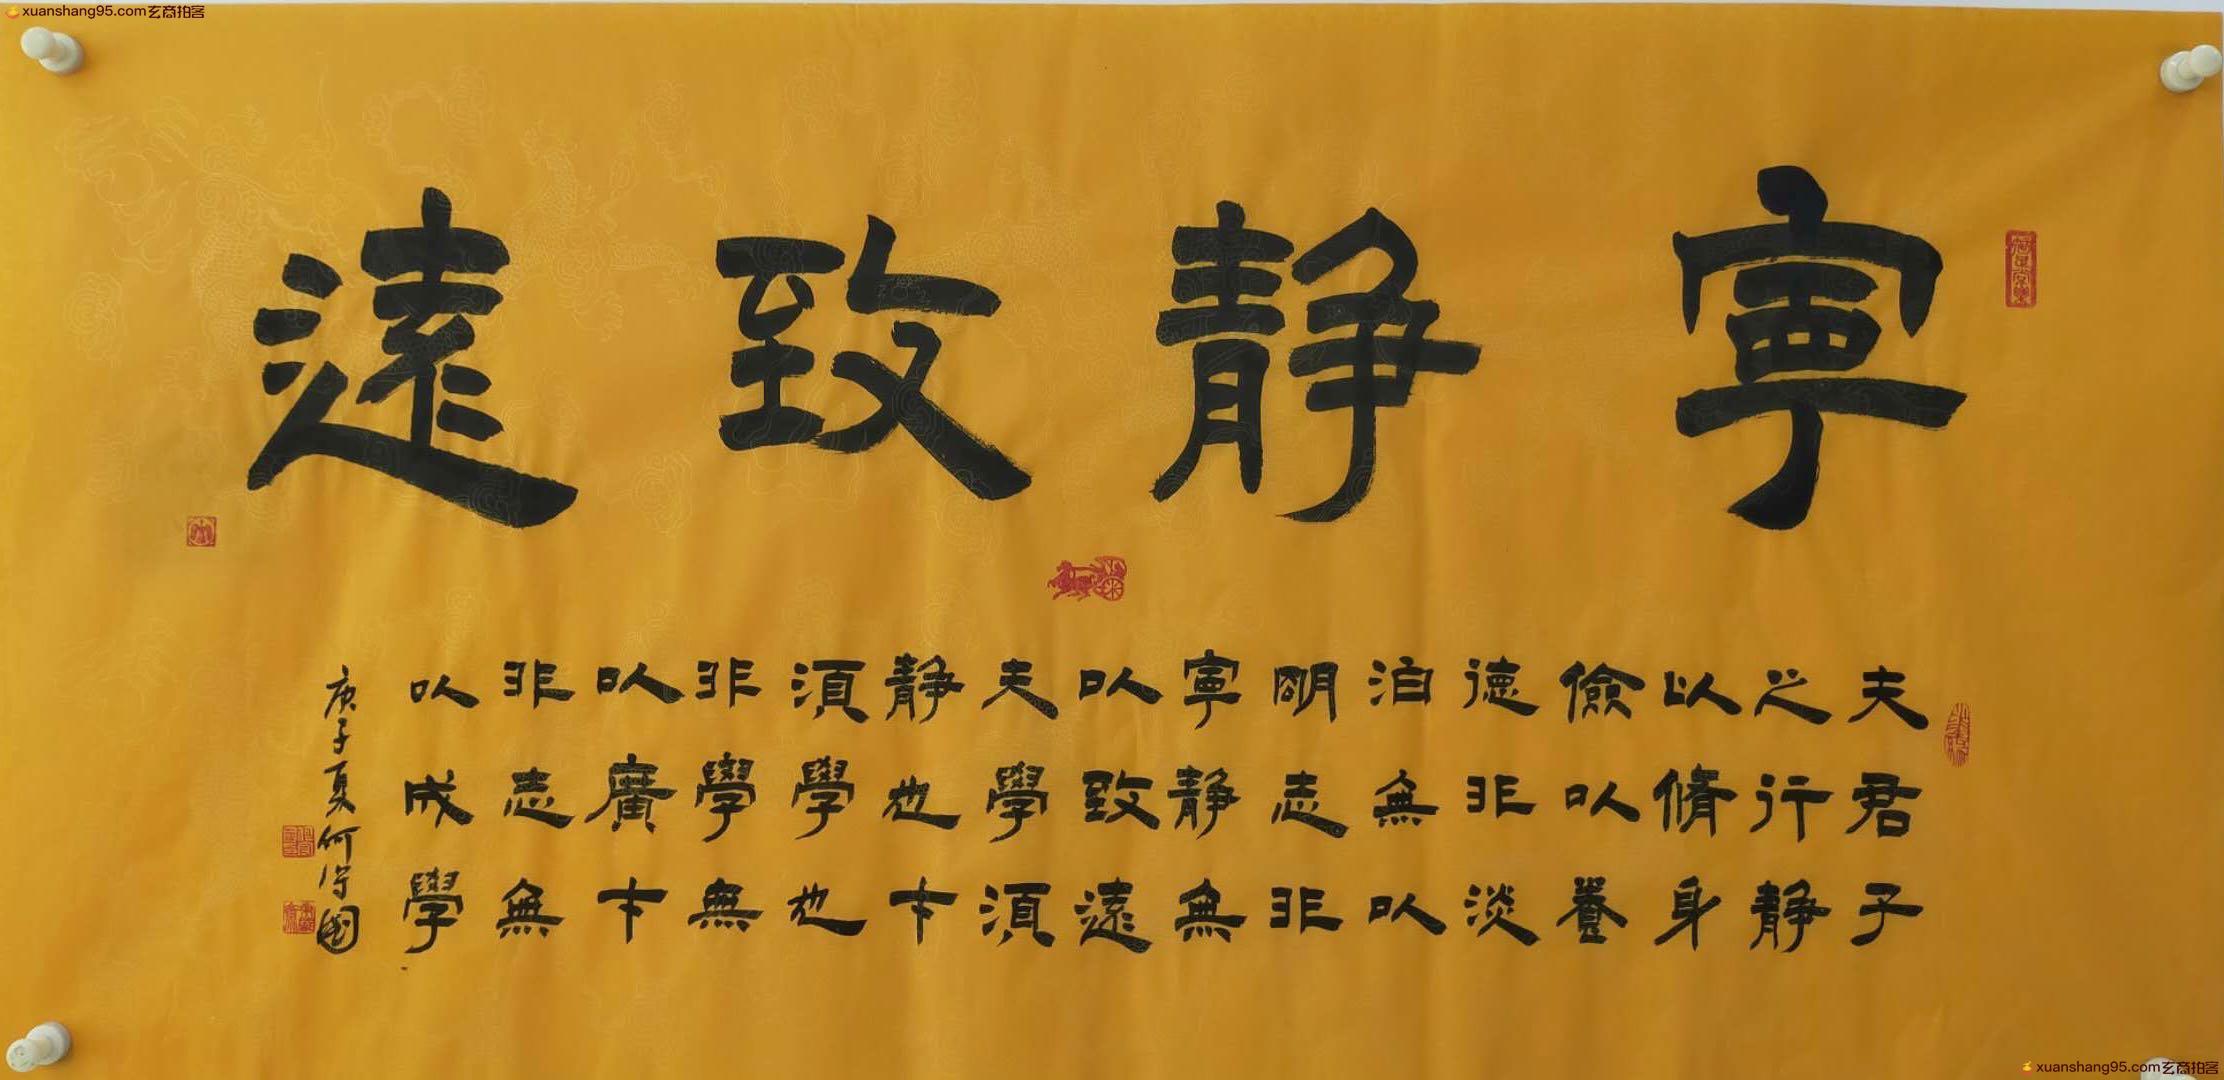 xuanshang95.com玄商拍客
寧静致遠
夫君子
之行静
以脩身
儉以養
德非淡
泊無以
明志非
寧静無
以致遠
夫學須
静也才
須學也
非學無
以廣才
非志無
以成學
庚子夏何國
xuanshang95.com玄商拍客